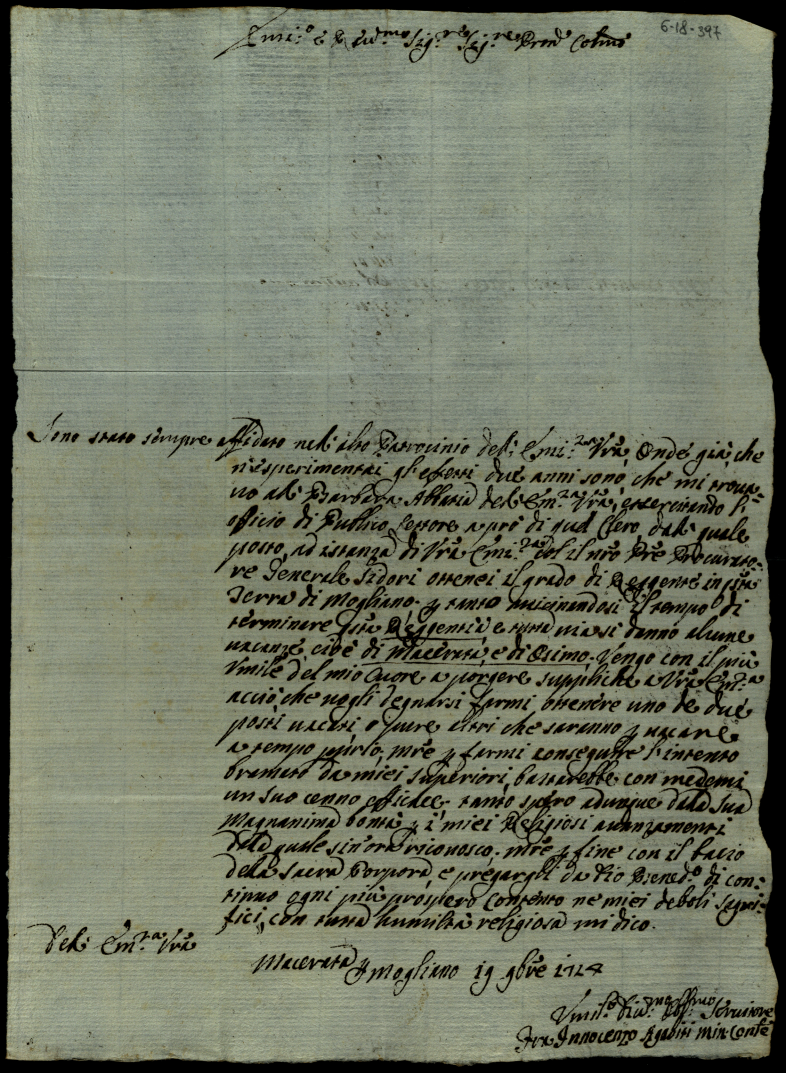 6-18-397
Emi.º e R Sig.re Sig.re Pron Colmo
Sono stato sempre affidato nel alto Patrocinio del Emi.za Vrã, Onde già che
n'esperimentai gl'effetti due anni sono che mi trova
vo al Barbara Abbatia del Em.za Vrã, essercitando l'
officio di Publico Lettore a prò di quel Clero, dal quale
posto, ad istanza di Vrã Emi.za col il nrõ Pre Procurato-
re Generale Sidori ottenei il grado di Reggente in qsta
Terra di Mogliano. tanto avicinandosi il tempo di
terminare qsta Reggentia e tutta via si danno alcune
vacanze cioè di Macerata, e di Osimo, Vengo con il più
Vmile del mio Cuore a porgere suppliche a Vrã Em.za
acciò, che vogli degnarsi farmi ottenere uno de due
posti vacati, o pure altri che saranno vacare
a tempo mre farmi conseguire l'intento
bramato da miei superiori, bastarebbe con medemi
un suo cenno efficace. tanto spero adunque dala sua
Magnanima bontà i miei Religiosi avanzamenti
dala quale sin'ora riconosco. mre fine con il bacio
dela Sacra Porpora, e pregargli da Dio Bened.º di con-
tinuo ogni più prospero contento ne miei deboli sagri-
fici, con tutta humiltà religiosa mi dico.
Del Em.za Vrã
Macerata Mogliano 19 9bre 1724
Vmil.º Servitore
Fra Innocenzo Agabiti Min. Conle